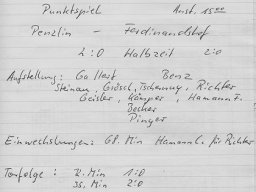 Punktspiel Anst. 15.00
Penzlin - Ferdinandshof
2:0 Halbzeit 2:0
Aufstellung: Gollert Benz
Steinau, Grösch, Tschenny, Richter
Geister, Kämper, Hamann F.
Becker
Pinger
Einwechslungen: 68. Min Hamann L. für Richter
Torfolge: 2. Min 1:0
35. Min 2:0